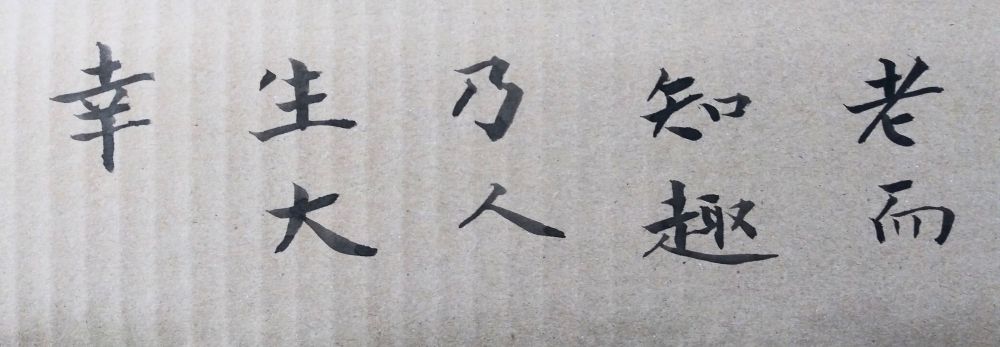 老而
知趣
乃人
生大
幸